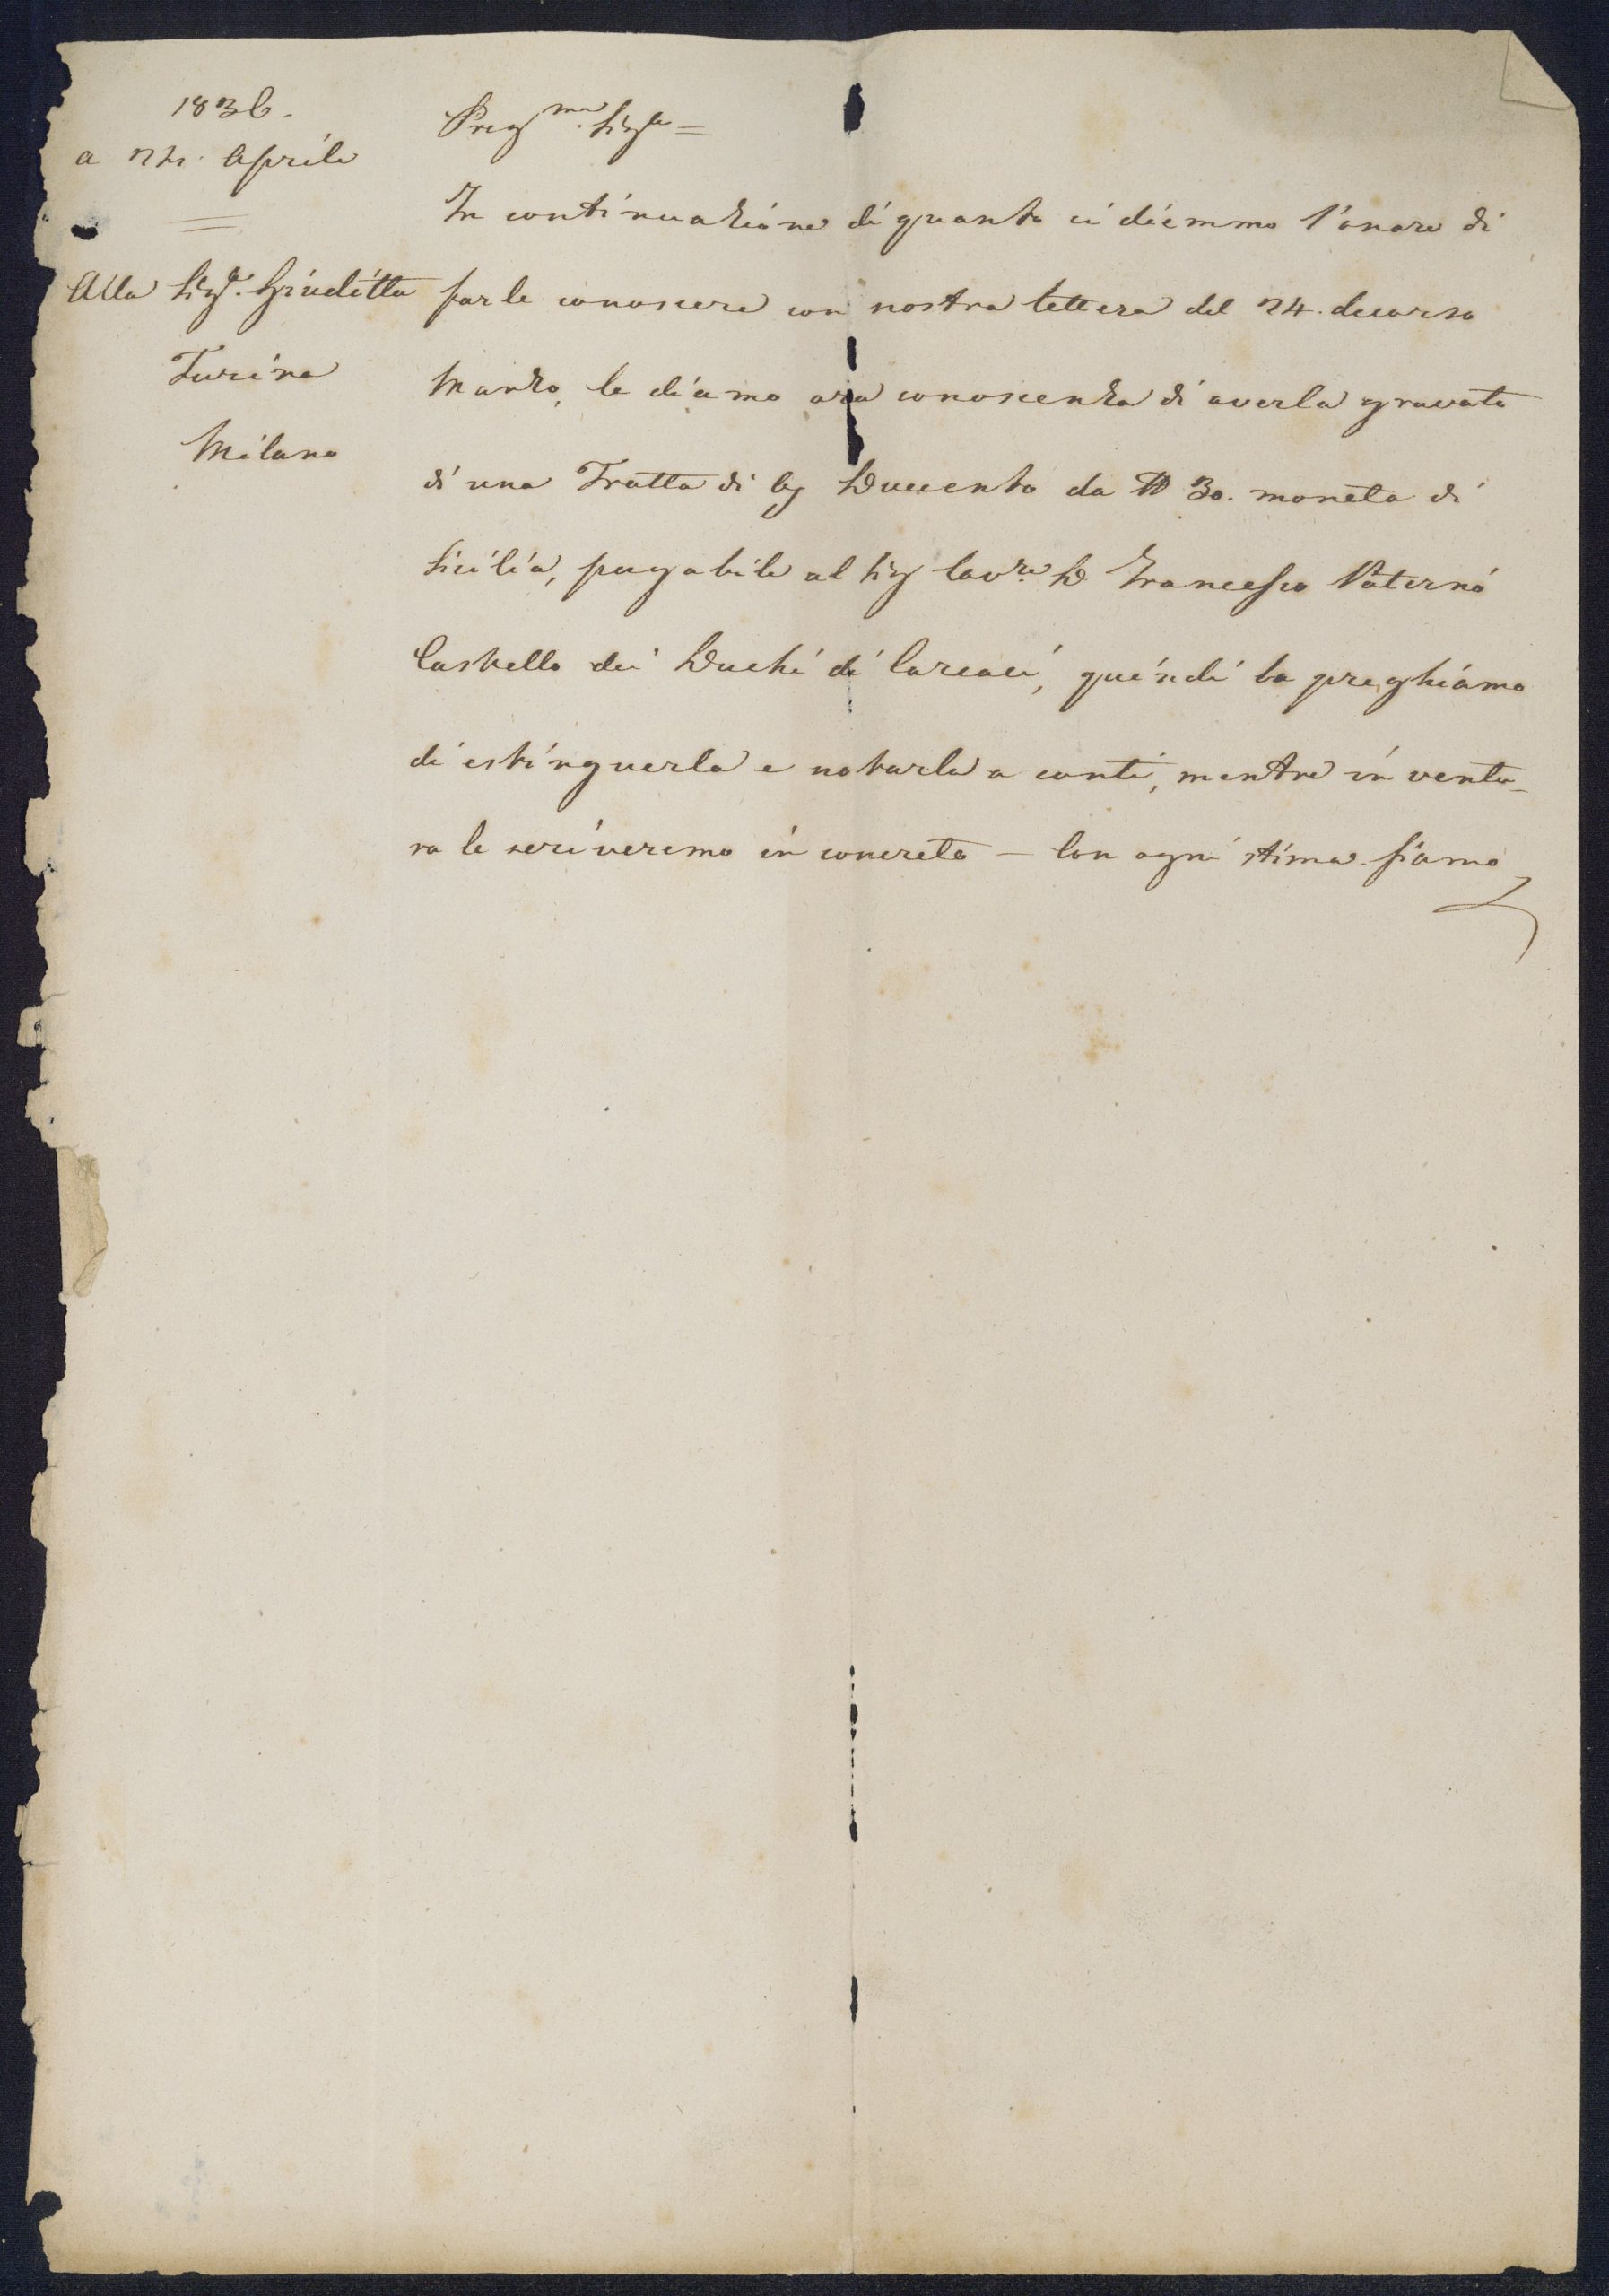 1836.
a 24. Aprile
Alla Sig.ra Giuditta
Turina
Milano
Preg.ma Sig.ra =
In continuazione di quanto ci diemmo l'onore di
farle conoscere con nostra lettera del 24. decorso
Marzo, le diamo ora conoscenza di averla gravata
di una Tratta di Ducento da 30. moneta di
Sicilia, pagabile al Sig Cav.re D Francesco Paternó
Castello dei Duchi di Carcaci, quindi la preghiamo
di estinguerla e notarla a conti, mentre in ventu-
ra le scriveremo in concreto – Con ogni stima siamo